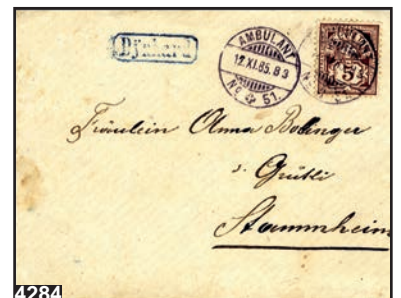 Dynhard
AMBULANT
12.XI.85.8 3
No 51.
5
Fräulein Anna Bolinger
z. Grütli
Stammheim
4284